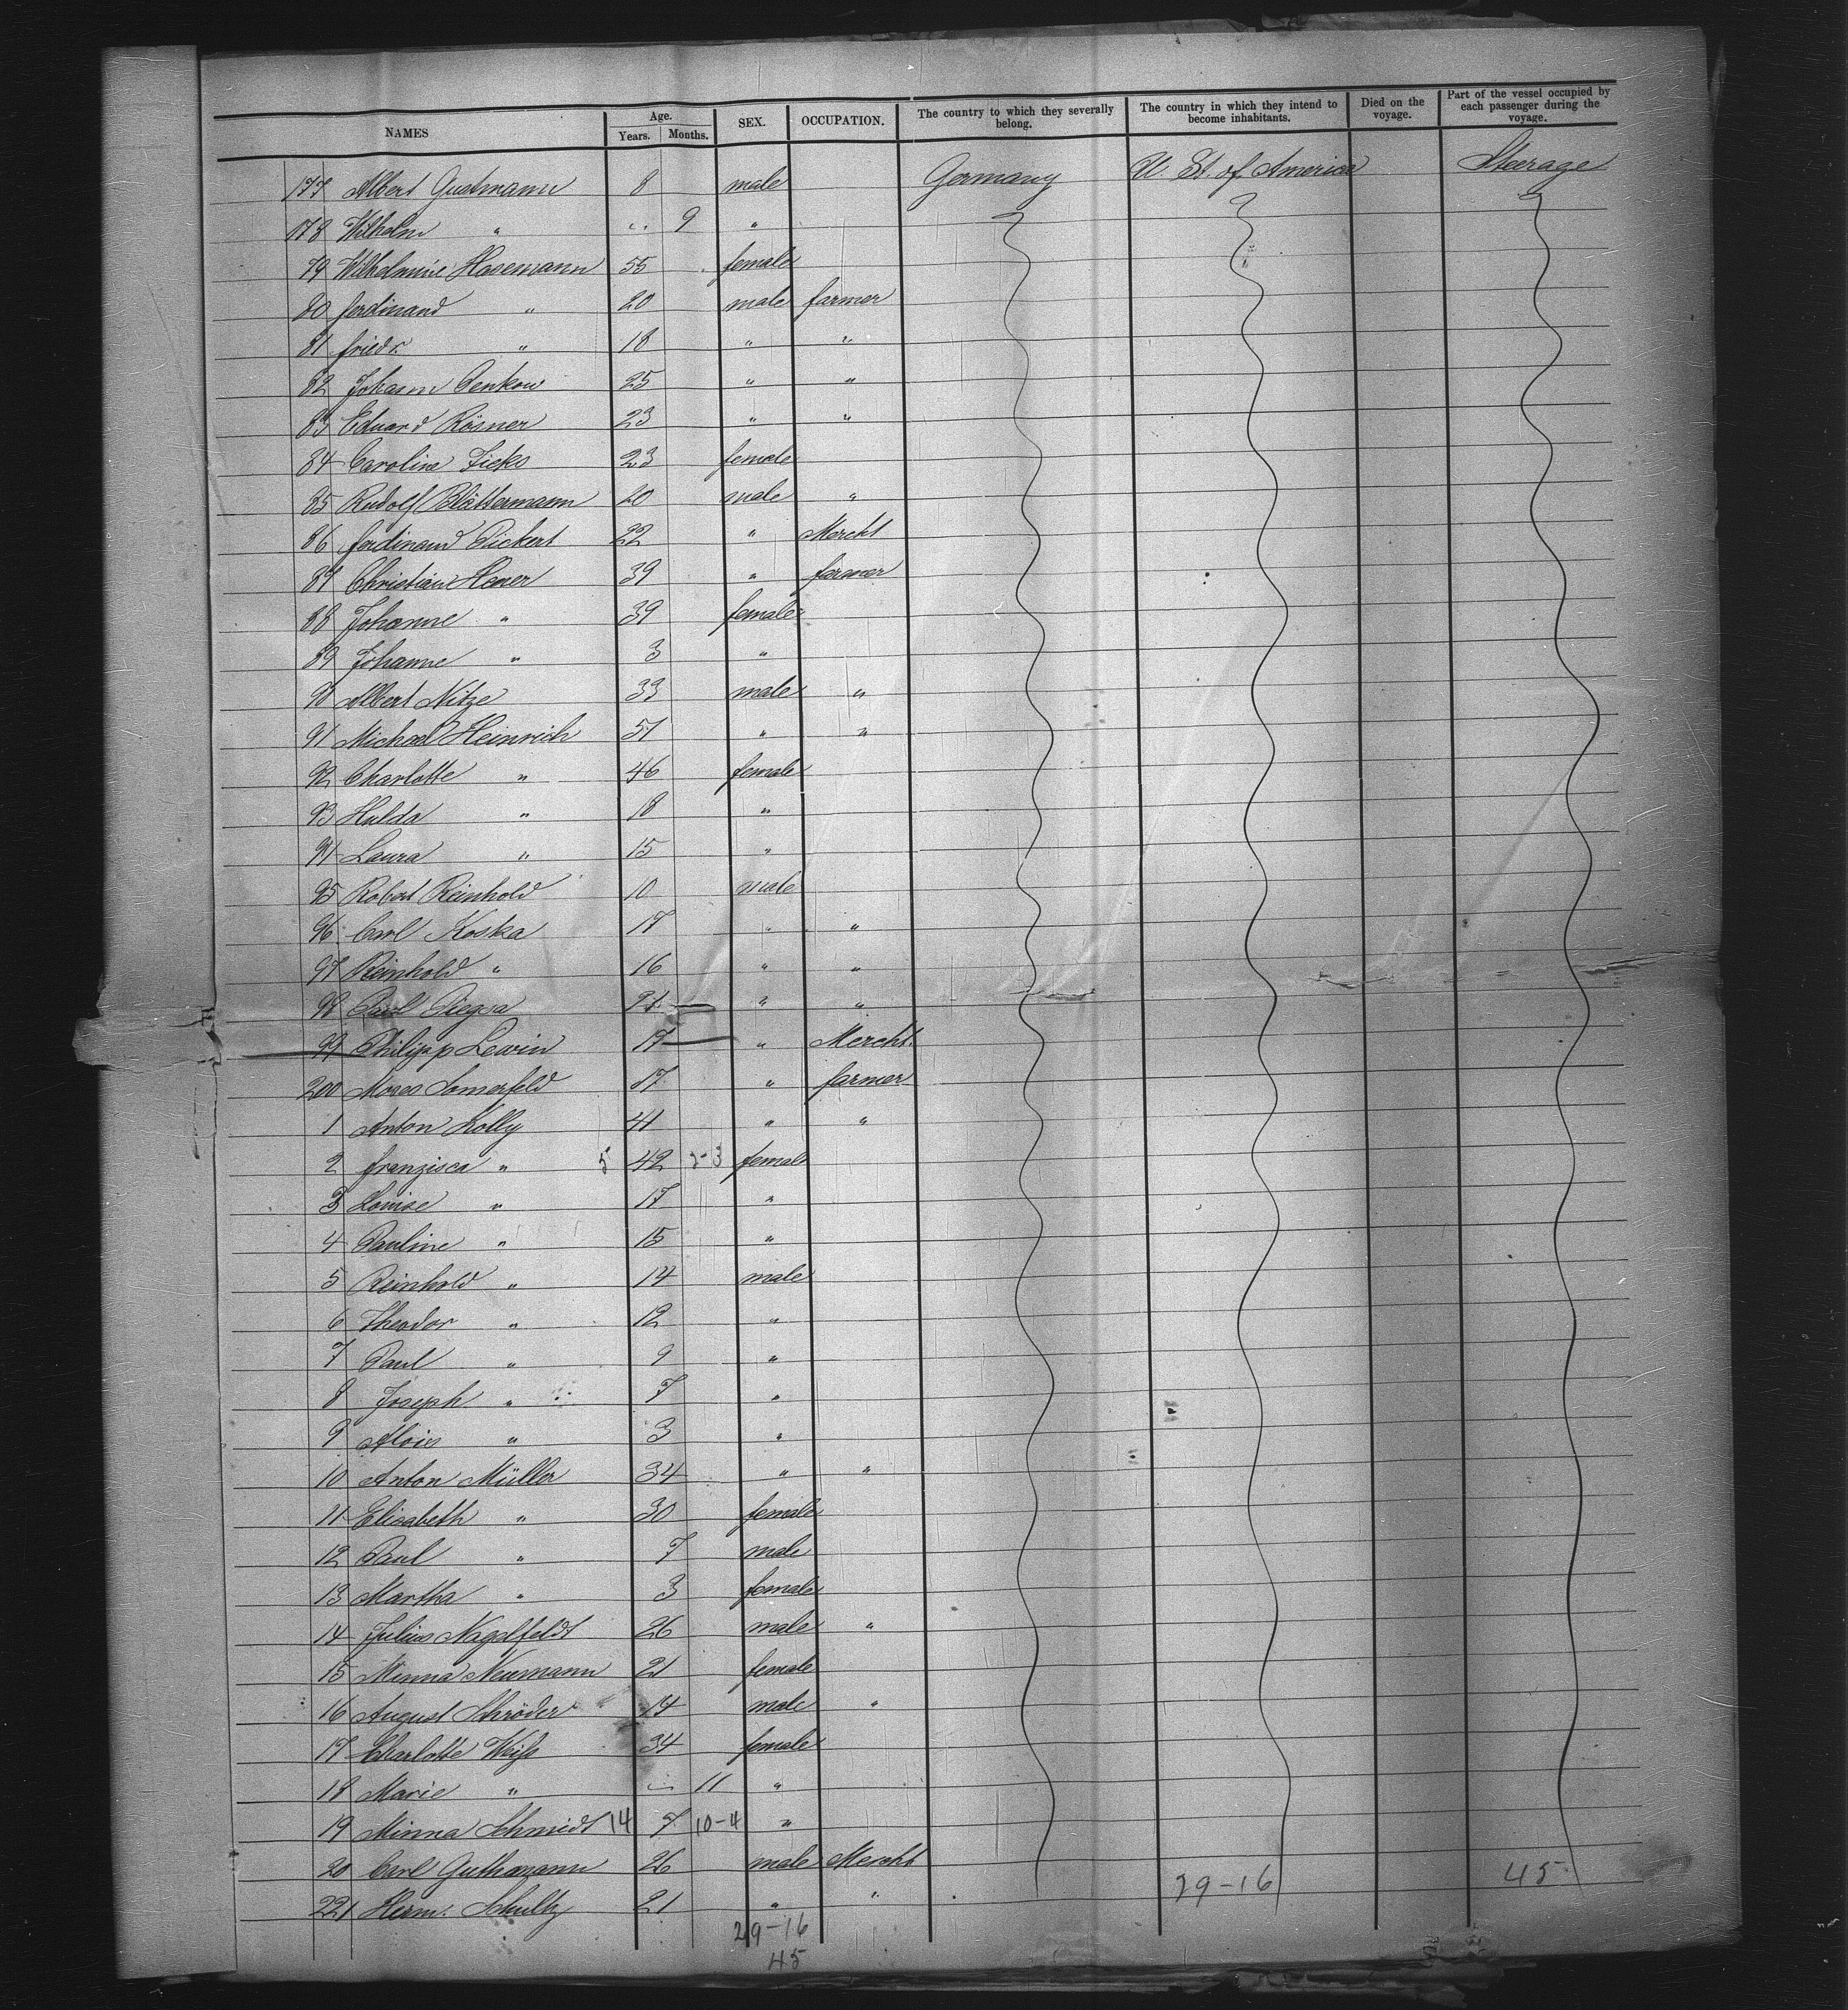 NAMES Age. Years. Months. SEX. OCCUPATION. The country to which they severally belong. The country in which they intend to become inhabitants. Died on the voyage. Part of the vessel occupied by each passenger during the voyage.
177 Albert Gustmann 8 male Germany U. St. of America Steerage
178 Wilhelm " " 9 "
79 Wilhelmine Hasemann 55 female
80 Ferdinand " 20 male farmer
81 Friedr. " 18 " "
82 Johann 25 " "
83 Eduard Rösner 23 " "
84 Caroline Ficks 23 female
85 Rudolf Blättermann 20 male "
86 Ferdinand Pickert 22 " Mercht
87 Christian Hener 39 " farmer
88 Johanne " 39 female
89 Johanne " 3 "
90 Albert Nitze 33 male "
91 Michael Heinrich 51 " "
92 Charlotte " 46 female
93 Hulda " 18 "
94 Laura " 15 "
95 Robert Reinhold 10 male
96 Carl Koska 17 " "
97 Reinhold " 16 " "
98 Paul " "
99 Philipp Lewin 17 " Mercht.
200 Moses Somerfeld 17 " farmer
1 Anton Kolly 41 " "
2 Franzisca " 5 42 2-3 female
3 Louise " 17 "
4 Pauline " 15 "
5 Reinhold " 14 male
6 Theodor " 12 "
7 Paul " 9 "
8 Joseph " 7 "
9 Alois " 3 "
10 Anton Müller 34 " "
11 Elisabeth " 30 female
12 Paul " 7 male
13 Martha " 3 female
14 Julius Nagelfeldt 26 male "
15 Minna Neumann 21 female
16 August Schröder 14 male "
17 Charlotte Weiß 34 female
18 Marie " " 11 "
19 Minna Schmidt 14 7 10-4 "
20 Carl Guthmann 26 male Mercht
221 Herm. Schultz 21 " "
29-16 45
29-16
45